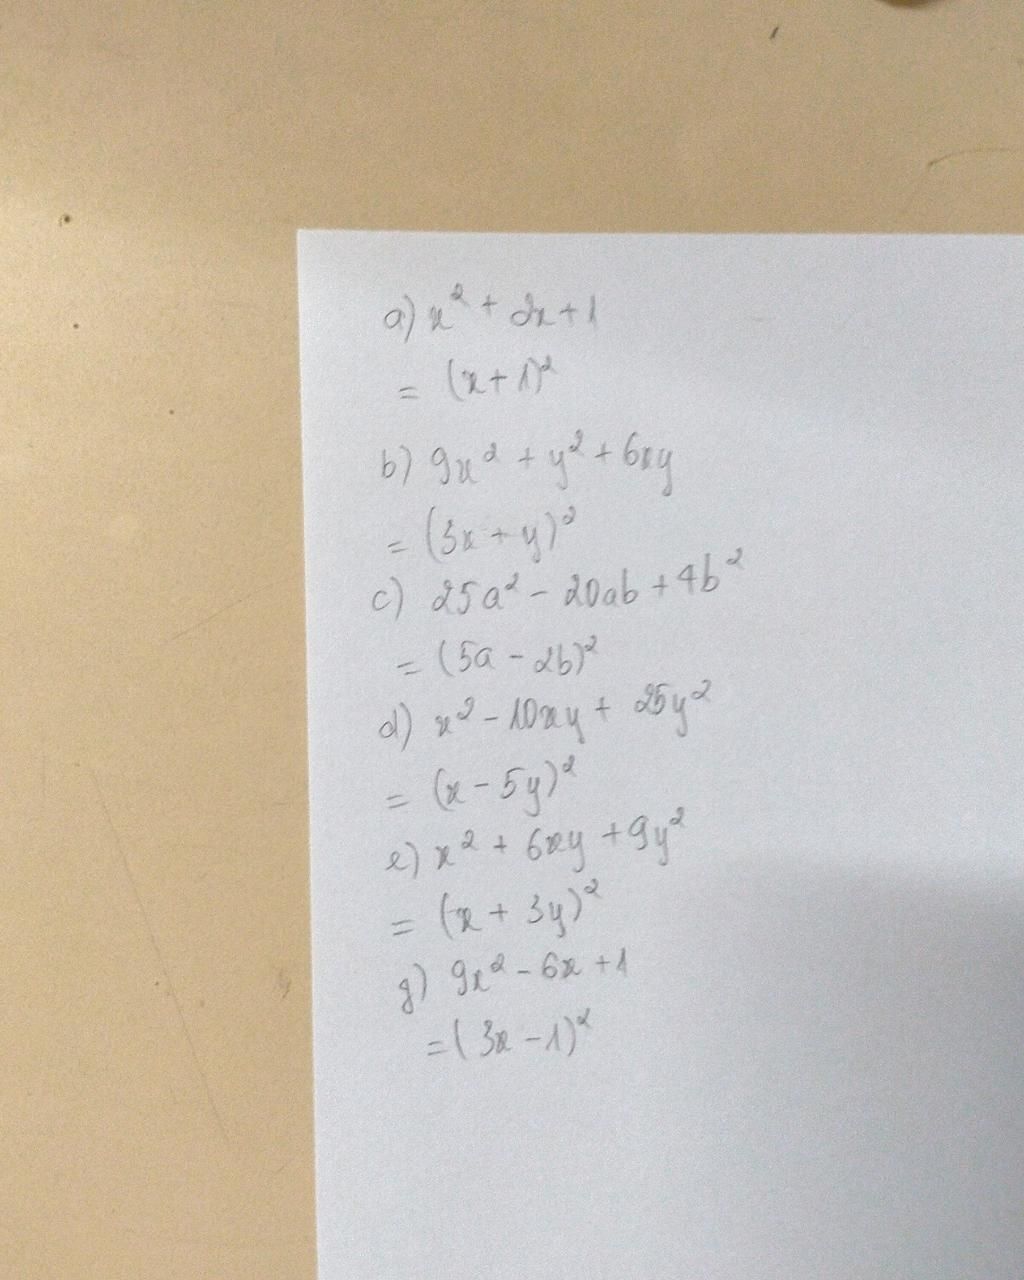 a) x² + 2x + 1
= (x + 1)²
b) 9x² + y² + 6xy
= (3x + y)²
c) 25a² - 20ab + 4b²
= (5a - 2b)²
d) x² - 10xy + 25y²
= (x - 5y)²
e) x² + 6xy + 9y²
= (x + 3y)²
g) 9x² - 6x + 1
= (3x - 1)²